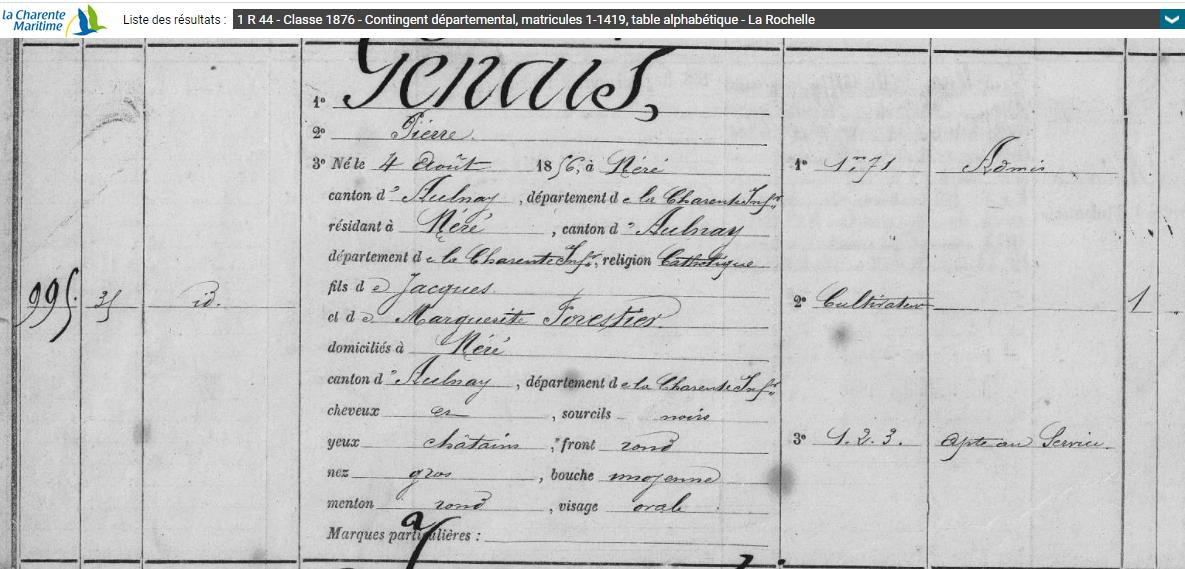 la Charente Maritime
Liste des résultats : 1 R 44 - Classe 1876 - Contingent départemental, matricules 1-1419, table alphabétique - La Rochelle
1° Genaus,
2° Pierre.
3° Né le 4 Août 1856, à Néré
canton d'Aulnay, département de la Charente Infre
résidant à Néré, canton d'Aulnay
département de la Charente Infre, religion Catholique
fils de Jacques
et de Marguerite Forestier.
domiciliés à Néré
canton d'Aulnay, département de la Charente Infre
cheveux et, sourcils noirs
yeux châtains, front rond
nez gros, bouche moyenne
menton rond, visage ovale
Marques particulières :
995. 35 id.
1° 1m,71 Admis
2° Cultivateur 1
3° 1. 2. 3. apte au Service.